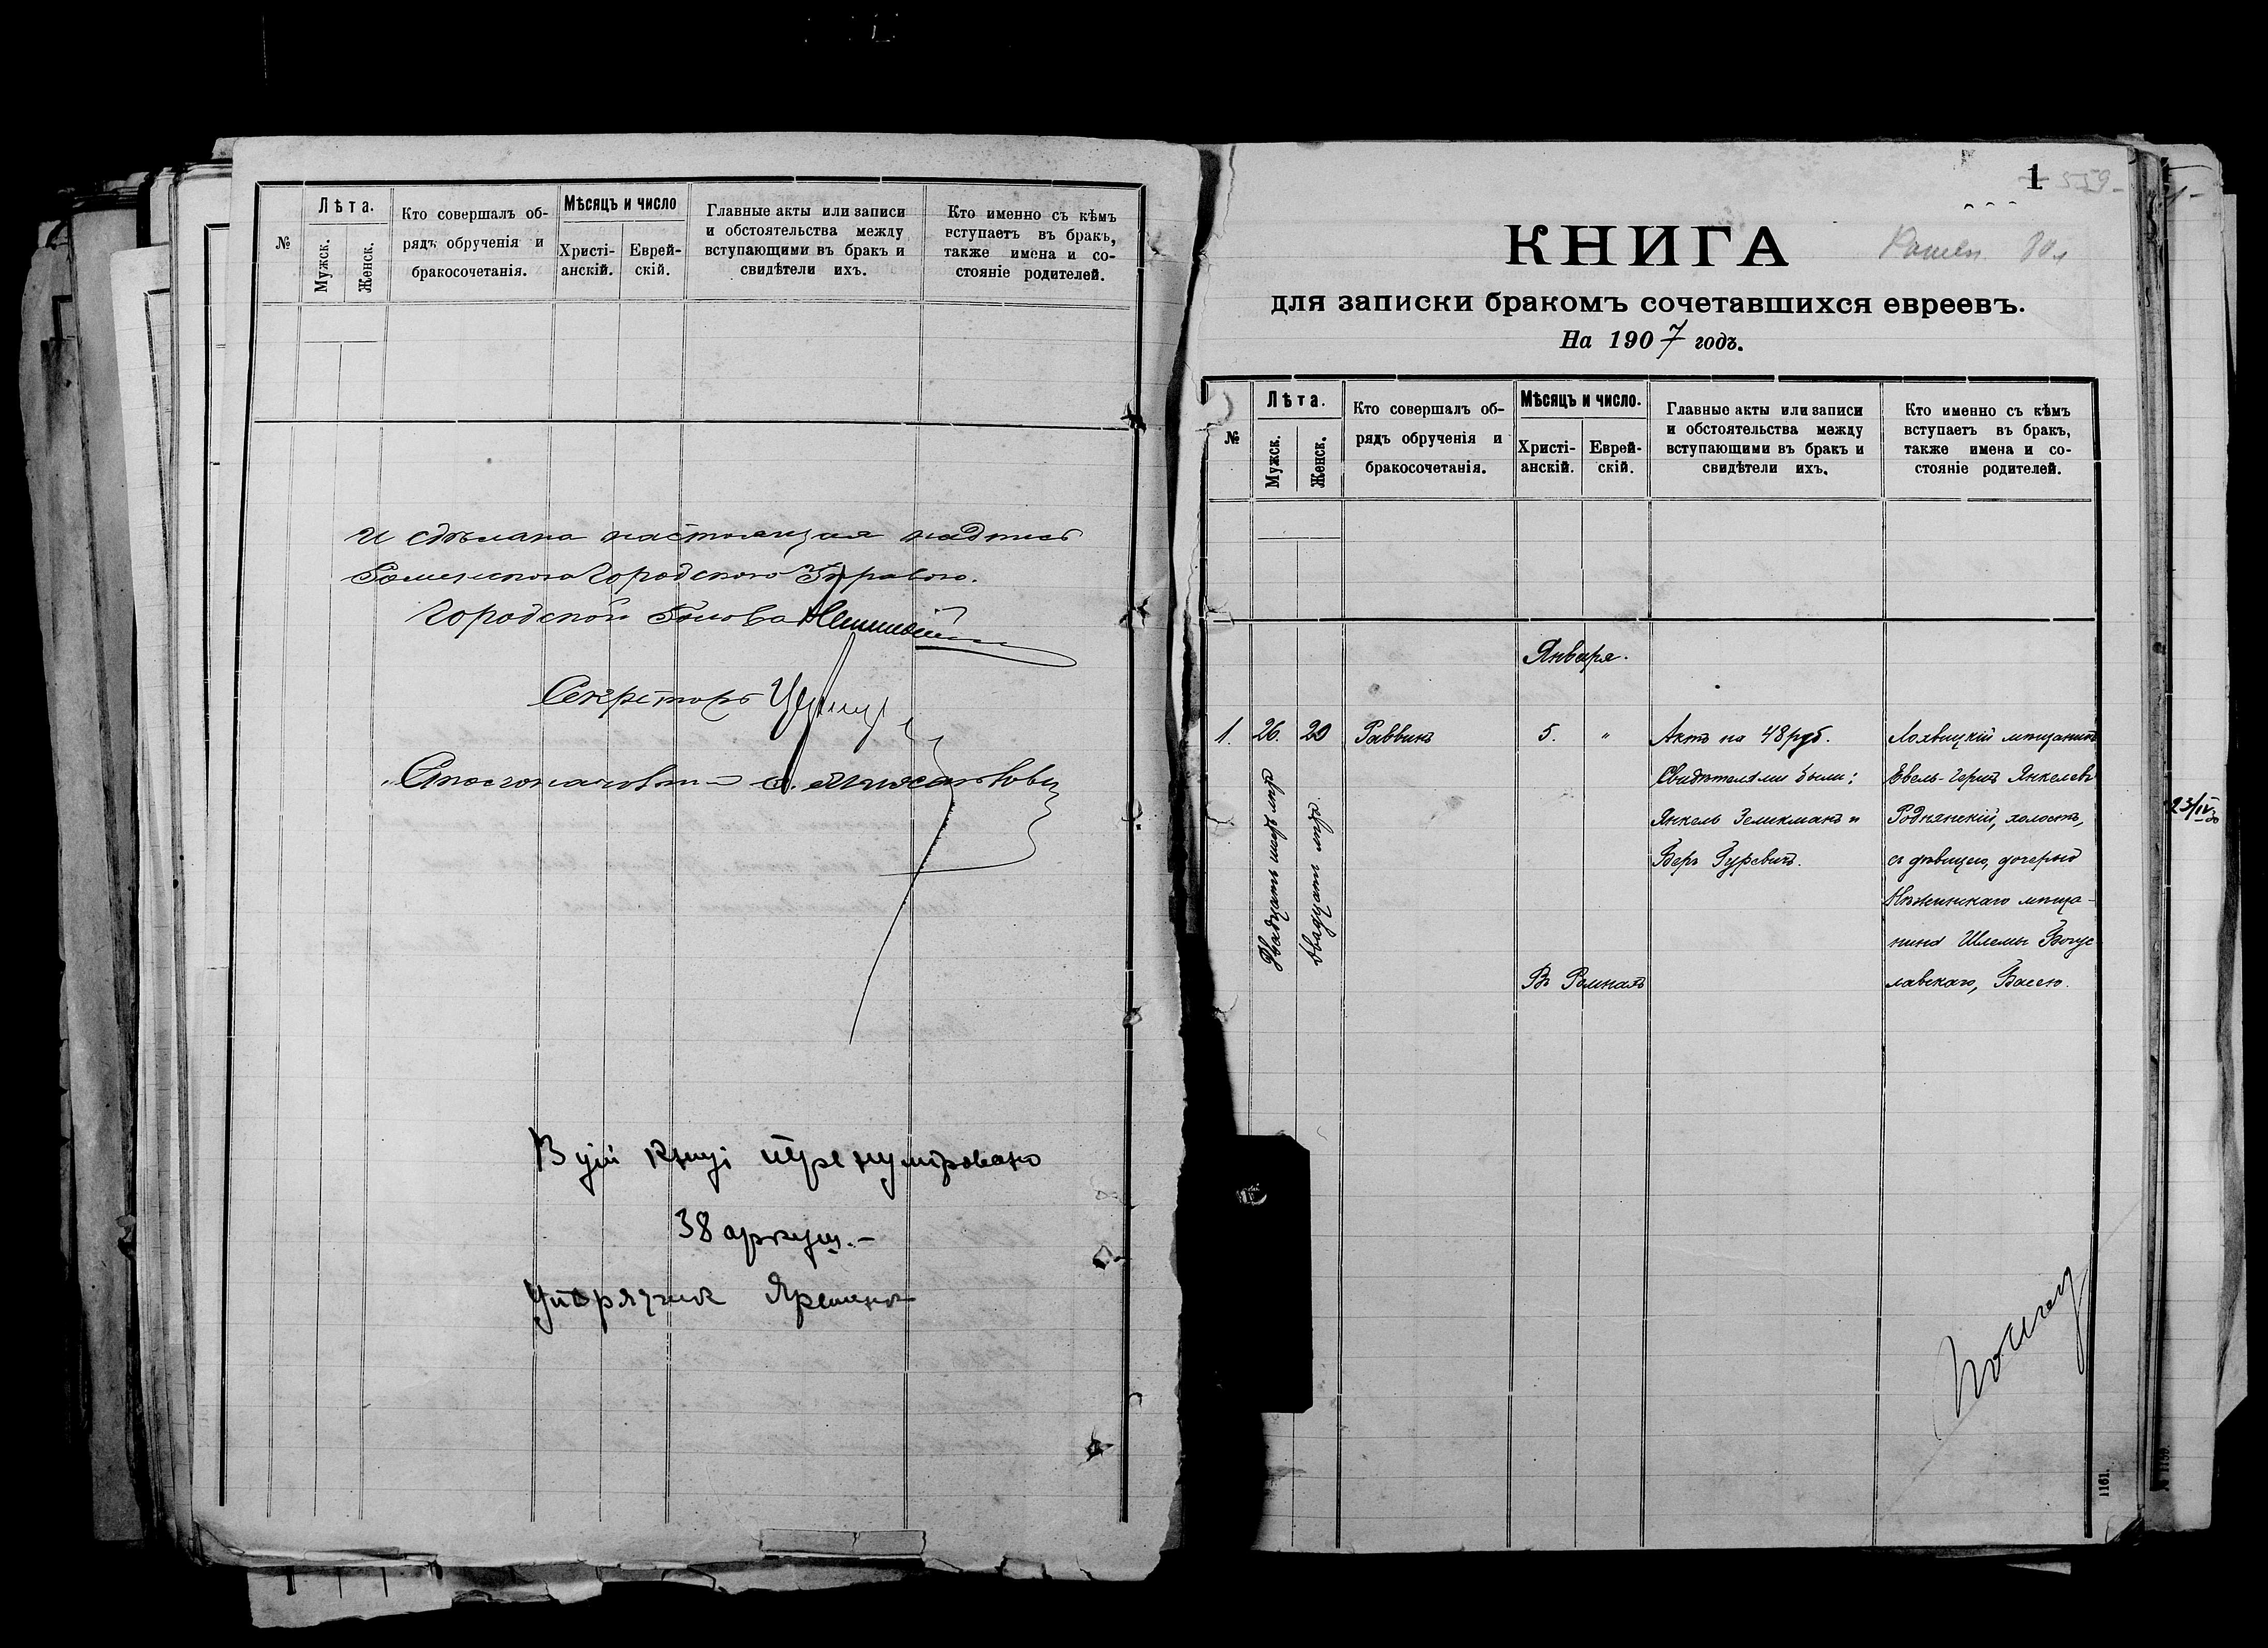 №
Лѣта.
Мужск.
Женск.
Кто совершалъ об-
рядъ обрученія и
бракосочетанія.
Мѣсяцъ и число
Христі-
анскій.
Еврей-
скій.
Главные акты или записи
и обстоятельства между
вступающими въ бракъ и
свидѣтели ихъ.
Кто именно съ кѣмъ
вступаетъ въ бракъ,
также имена и со-
стояніе родителей.
и сдѣлана настоящая надпись
Городской
Городской Голова
Секретарь
В цій книзі
38 аркуш.-
1
559-
КНИГА
для записки бракомъ сочетавшихся евреевъ.
На 1907 годъ.
№
Лѣта.
Мужск.
Женск.
Кто совершалъ об-
рядъ обрученія и
бракосочетанія.
Мѣсяцъ и число.
Христі-
анскій.
Еврей-
скій.
Главные акты или записи
и обстоятельства между
вступающими въ бракъ и
свидѣтели ихъ.
Кто именно съ кѣмъ
вступаетъ въ бракъ,
также имена и со-
стояніе родителей.
Января.
1.
26.
20
Двадцать шесть лѣтъ
Двадцать лѣтъ.
Раввинъ
5.
"
Въ Ромнахъ
Актъ на 48 руб.
Свидѣтелями были:
Янкель Зеликманъ и
Беръ Гуревичъ.
Лохвицкій мѣщанинъ
Евель-Гершъ Янкелевъ
Роднянскій, холостъ,
съ дѣвицею, дочерью
Нѣжинскаго мѣща-
нина Шлемы Богус
лавскаго, Басею.
1161.
23/IV